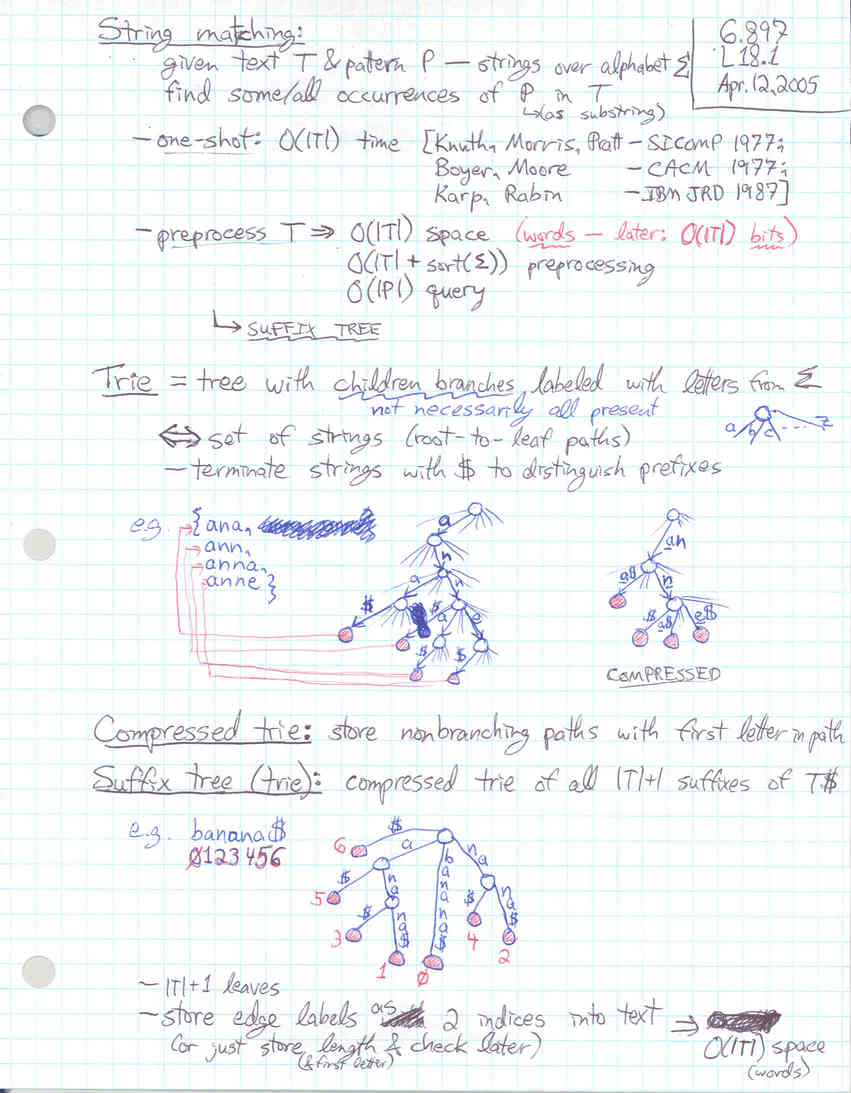 6.897
L18.1
Apr. 12, 2005
String matching:
given text T & pattern P — strings over alphabet Σ
find some/all occurrences of P in T
↳(as substring)
— one-shot: O(|T|) time [Knuth, Morris, Pratt — SICOMP 1977;
Boyer, Moore — CACM 1977;
Karp, Rabin — IBM JRD 1987]
— preprocess T ⇒ O(|T|) space (words — later: O(|T|) bits)
O(|T| + sort(Σ)) preprocessing
O(|P|) query
↳ SUFFIX TREE
Trie = tree with children branches labeled with letters from Σ
not necessarily all present
a b c ... z
⇔ set of strings (root-to-leaf paths)
— terminate strings with $ to distinguish prefixes
e.g. {ana,
ann,
anna,
anne}
a
n
a n
$ $ a e
$ $
an
a$ n
$ a$ e$
COMPRESSED
Compressed trie: store nonbranching paths with first letter in path
Suffix tree (trie): compressed trie of all |T|+1 suffixes of T$
e.g. banana$
0123456
$ a banana$ na
6
$ na $ na$
5
$ na$
3 4 2
1 0
— |T|+1 leaves
— store edge labels as 2 indices into text ⇒ O(|T|) space
(or just store length & check later) (words)
(& first letter)